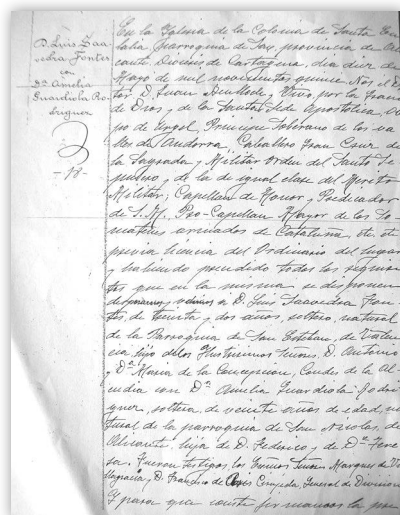 D. Luis Saa-
vedra Fontes
con
Dª Amelia
Guardiola Ro-
driguez
-18-
En la Iglesia de la Colonia de Santa Eu-
lalia, parroquia de Sax, provincia de Ali-
cante, Diócesis de Cartagena, dia diez de
Mayo de mil novecientos quince. Nos el D
tor D. Juan Benlloch y Vivó, por la Gracia
de Dios, y de la Santa Sede Apostólica, Obis
po de Urgel, Principe Soberano de los va
lles de Andorra, Caballero Gran Cruz de
la Sagrada y Militar Orden del Santo Se
pulcro, y de la de igual clase del Mérito
Militar, Capellan de Honor, y Predicador
de S. M., Pro-Capellan Mayor de los So-
matenes armados de Cataluña, etc. etc.
previa licencia del Ordinario del lugar
y habiendo precedido todos los requisi
tos que en la misma se disponen
D. Luis Saavedra Fon-
tes, de treinta y dos años, soltero, natural
de la Parroquia de San Esteban, de Valen
cia, hijo de los Ilustrisimos Señores, D. Antonio
y Dª Maria de la Concepcion, Condes de la Al
cudia con Dª Amelia Guardiola Rodri
guez, soltera, de veinte años de edad, na
tural de la parroquia de San Nicolas, de
Alicante, hija de D. Federico y de Dª Tere
sa. Fueron testigos los Exmos Señores Marques de Vi
llagracia y D. Francisco de General de Division
Y para que conste firmamos la pre